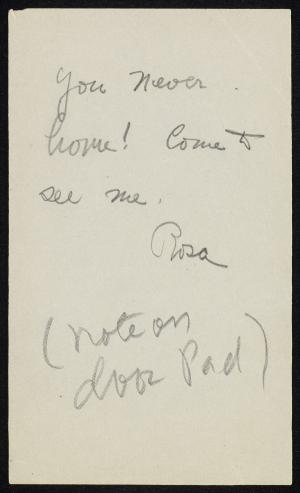 You never
home! Come to
see me.
Rosa
(note on
door Pad)